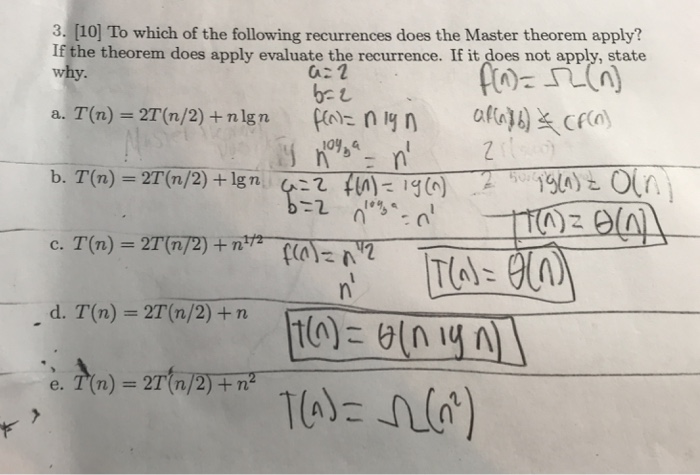 3. [10] To which of the following recurrences does the Master theorem apply?
If the theorem does apply evaluate the recurrence. If it does not apply, state
why.
a=2
b=2
f(n)= Ω(n)
a. T(n) = 2T(n/2) + n lg n
f(n)= n lg n
af(n/b) ≰ cf(n)
n^log_b a = n^1
2
b. T(n) = 2T(n/2) + lg n
a=2 f(n)= lg(n)
lg(n) = O(n)
b=2 n^log_b a = n^1
T(n) = θ(n)
c. T(n) = 2T(n/2) + n^1/2
f(n)= n^1/2
n^1
T(n) = θ(n)
d. T(n) = 2T(n/2) + n
T(n) = θ(n lg n)
e. T(n) = 2T(n/2) + n^2
T(n) = Ω(n^2)